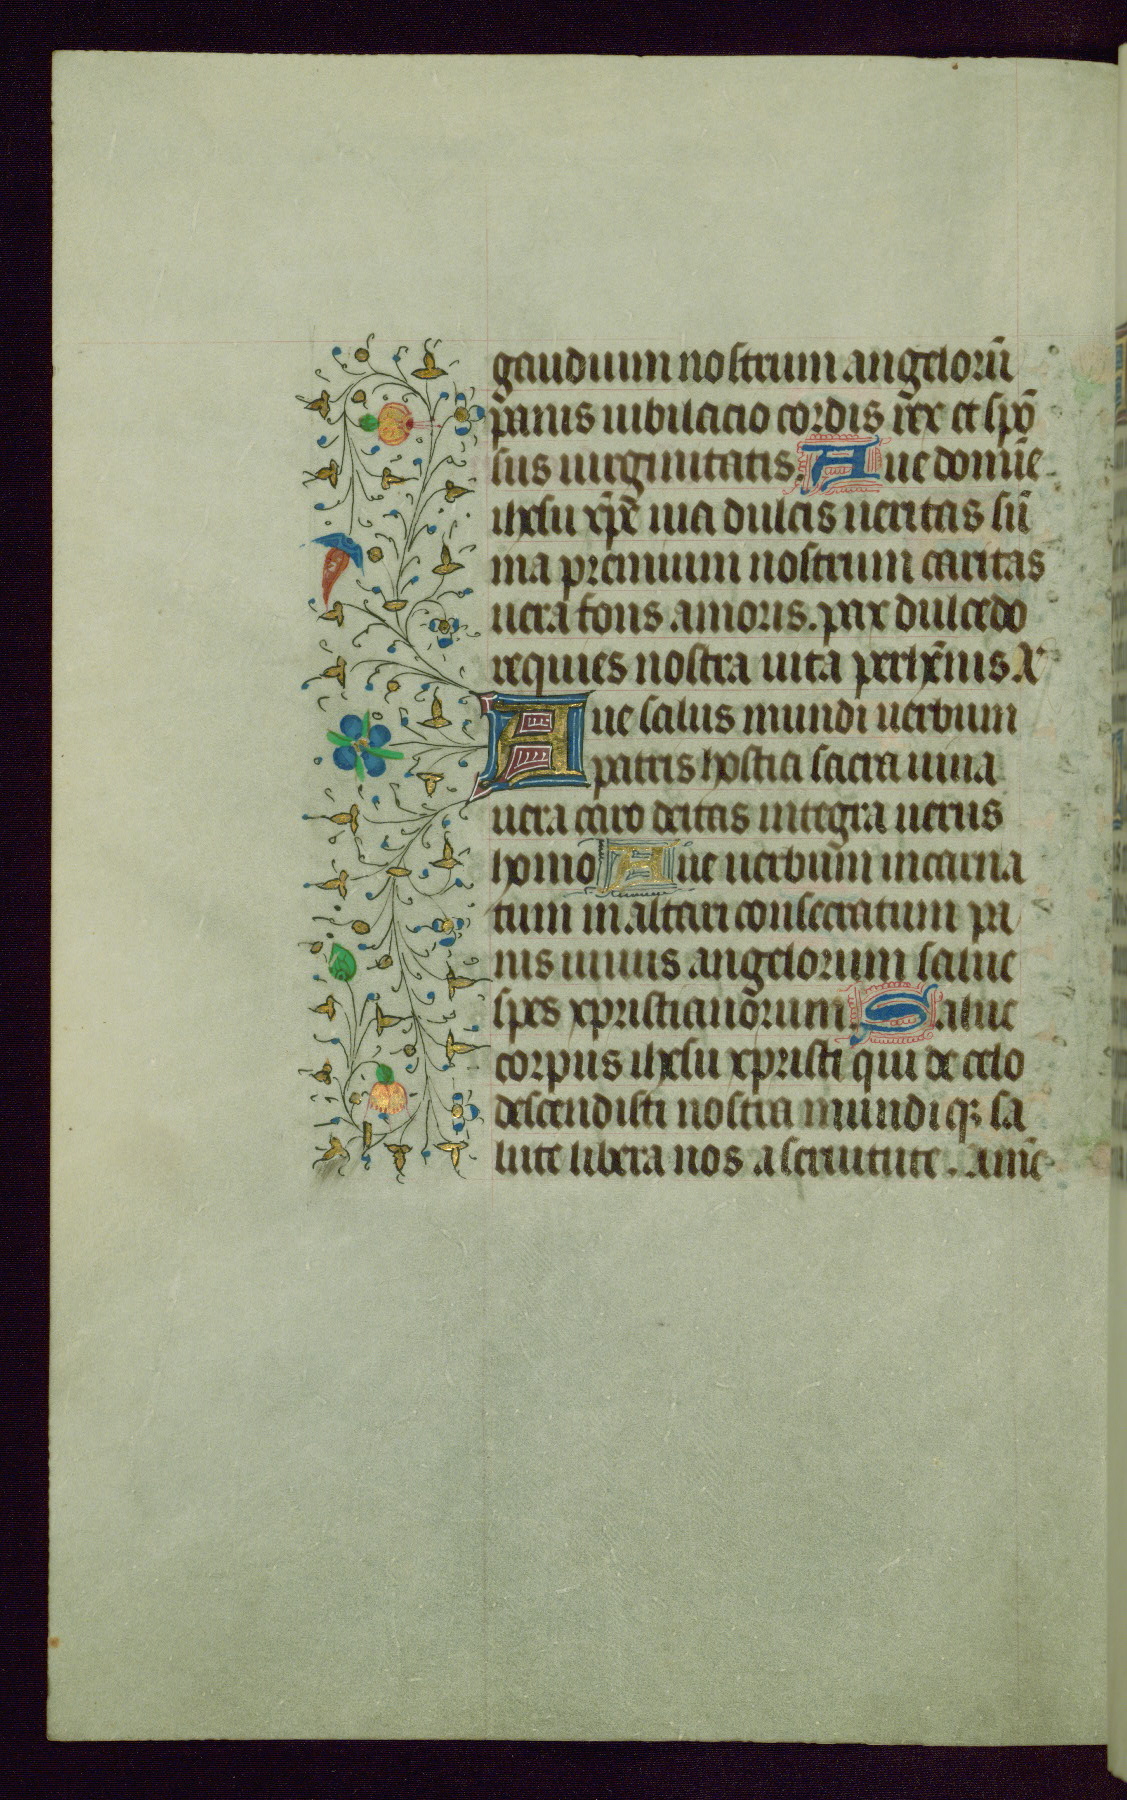 gaudium nostrum angelorū
panis iubilacio cordis rex et spō
sus uirginitatis. Aue domīe
ihesu xp̄e uia dulcis ueritas sū
ma premium nostrum caritas
uera fons amoris. pax dulcedo
requies nostra uita perhēnis. A
Aue salus mundi uerbum
patris hostia sacra uiua
uera caro deitas integra uerus
homo Aue uerbum incarna
tum in altari consecratum pa
nis uiuus angelorum salue
spes xpristianorum. Salue
corpus ihesu xpristi qui de celo
descendisti nostra mundi qꝫ sa
lute libera nos a seruitute. amē